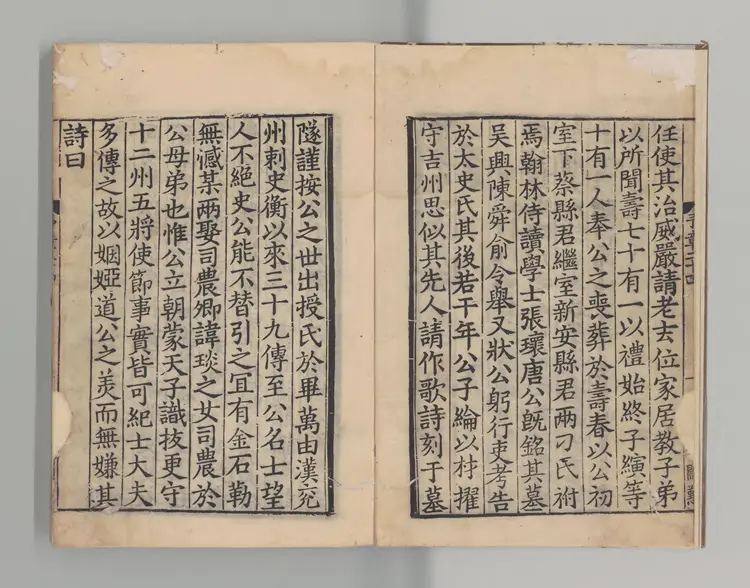 任使其治威嚴請老去位家居教子弟
以所聞壽七十有一以禮始終子縯等
十有一人奉公之喪葬於壽春以公初
室下蔡縣君繼室新安縣君兩刁氏祔
焉翰林侍讀學士張瓌唐公旣銘其墓
吳興陳舜俞令舉又狀公躬行吏考告
於太史氏其後若干年公子綸以材擢
守吉州思似其先人請作歌詩刻于墓
隧謹按公之世出授氏於畢萬由漢兖
州刺史衡以來三十九傳至公名士望
人不絕史公能不替引之宜有金石勒
無憾某兩娶司農卿諱琰之女司農於
公母弟也惟公立朝蒙天子識拔更守
十二州五將使節事實皆可紀士大夫
多傳之故以婣婭道公之美而無嫌其
詩曰